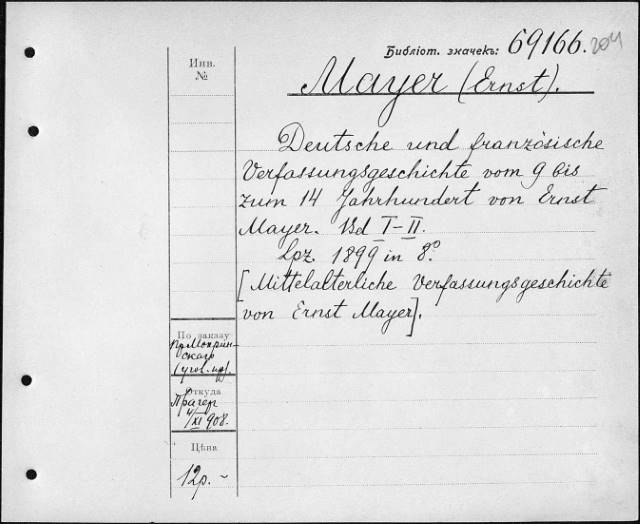 Библіот. значекъ: 69166. 204
Mayer (Ernst).
Инв.
№
Deutsche und französische
Verfassungsgeschichte vom 9 bis
zum 14 Jahrhundert von Ernst
Mayer. Bd I–II.
Lpz. 1899 in 8º.
[Mittelalterliche Verfassungsgeschichte
von Ernst Mayer].
По заказу
Откуда
Прагер
4/XI 908.
Цѣна
12р.-